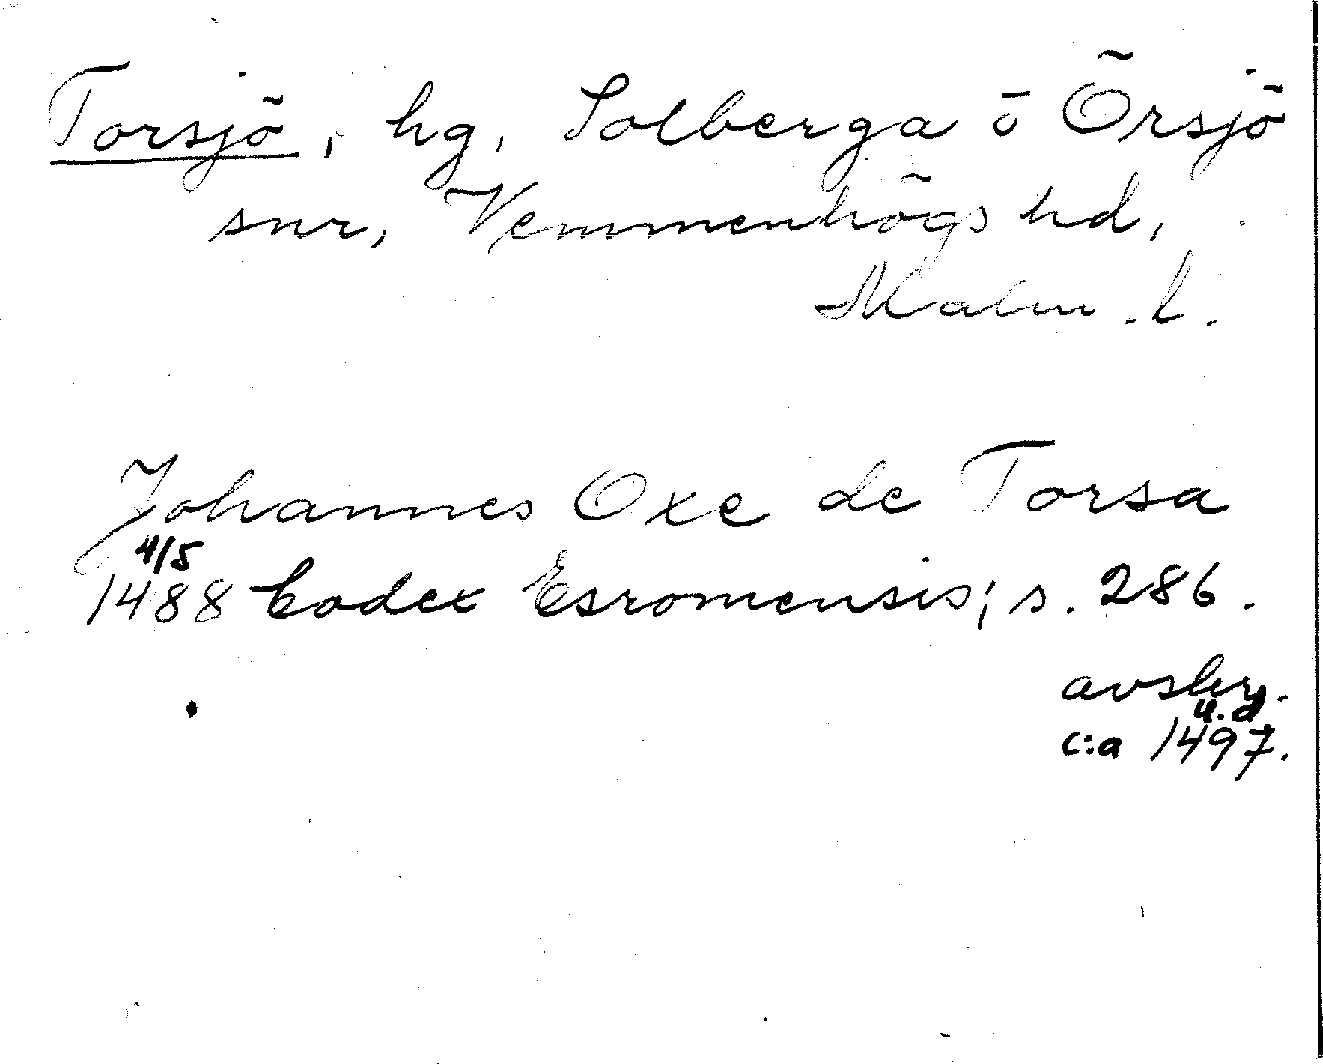 Torsjö, hg, Solberga o Örsjö
snr, Vemmenhögs hd,
Malm. l.
Johannes Oxe de Torsa
4/5
1488 Codex Esromensis; s. 286.
avskr.
u. d.
c:a 1497.